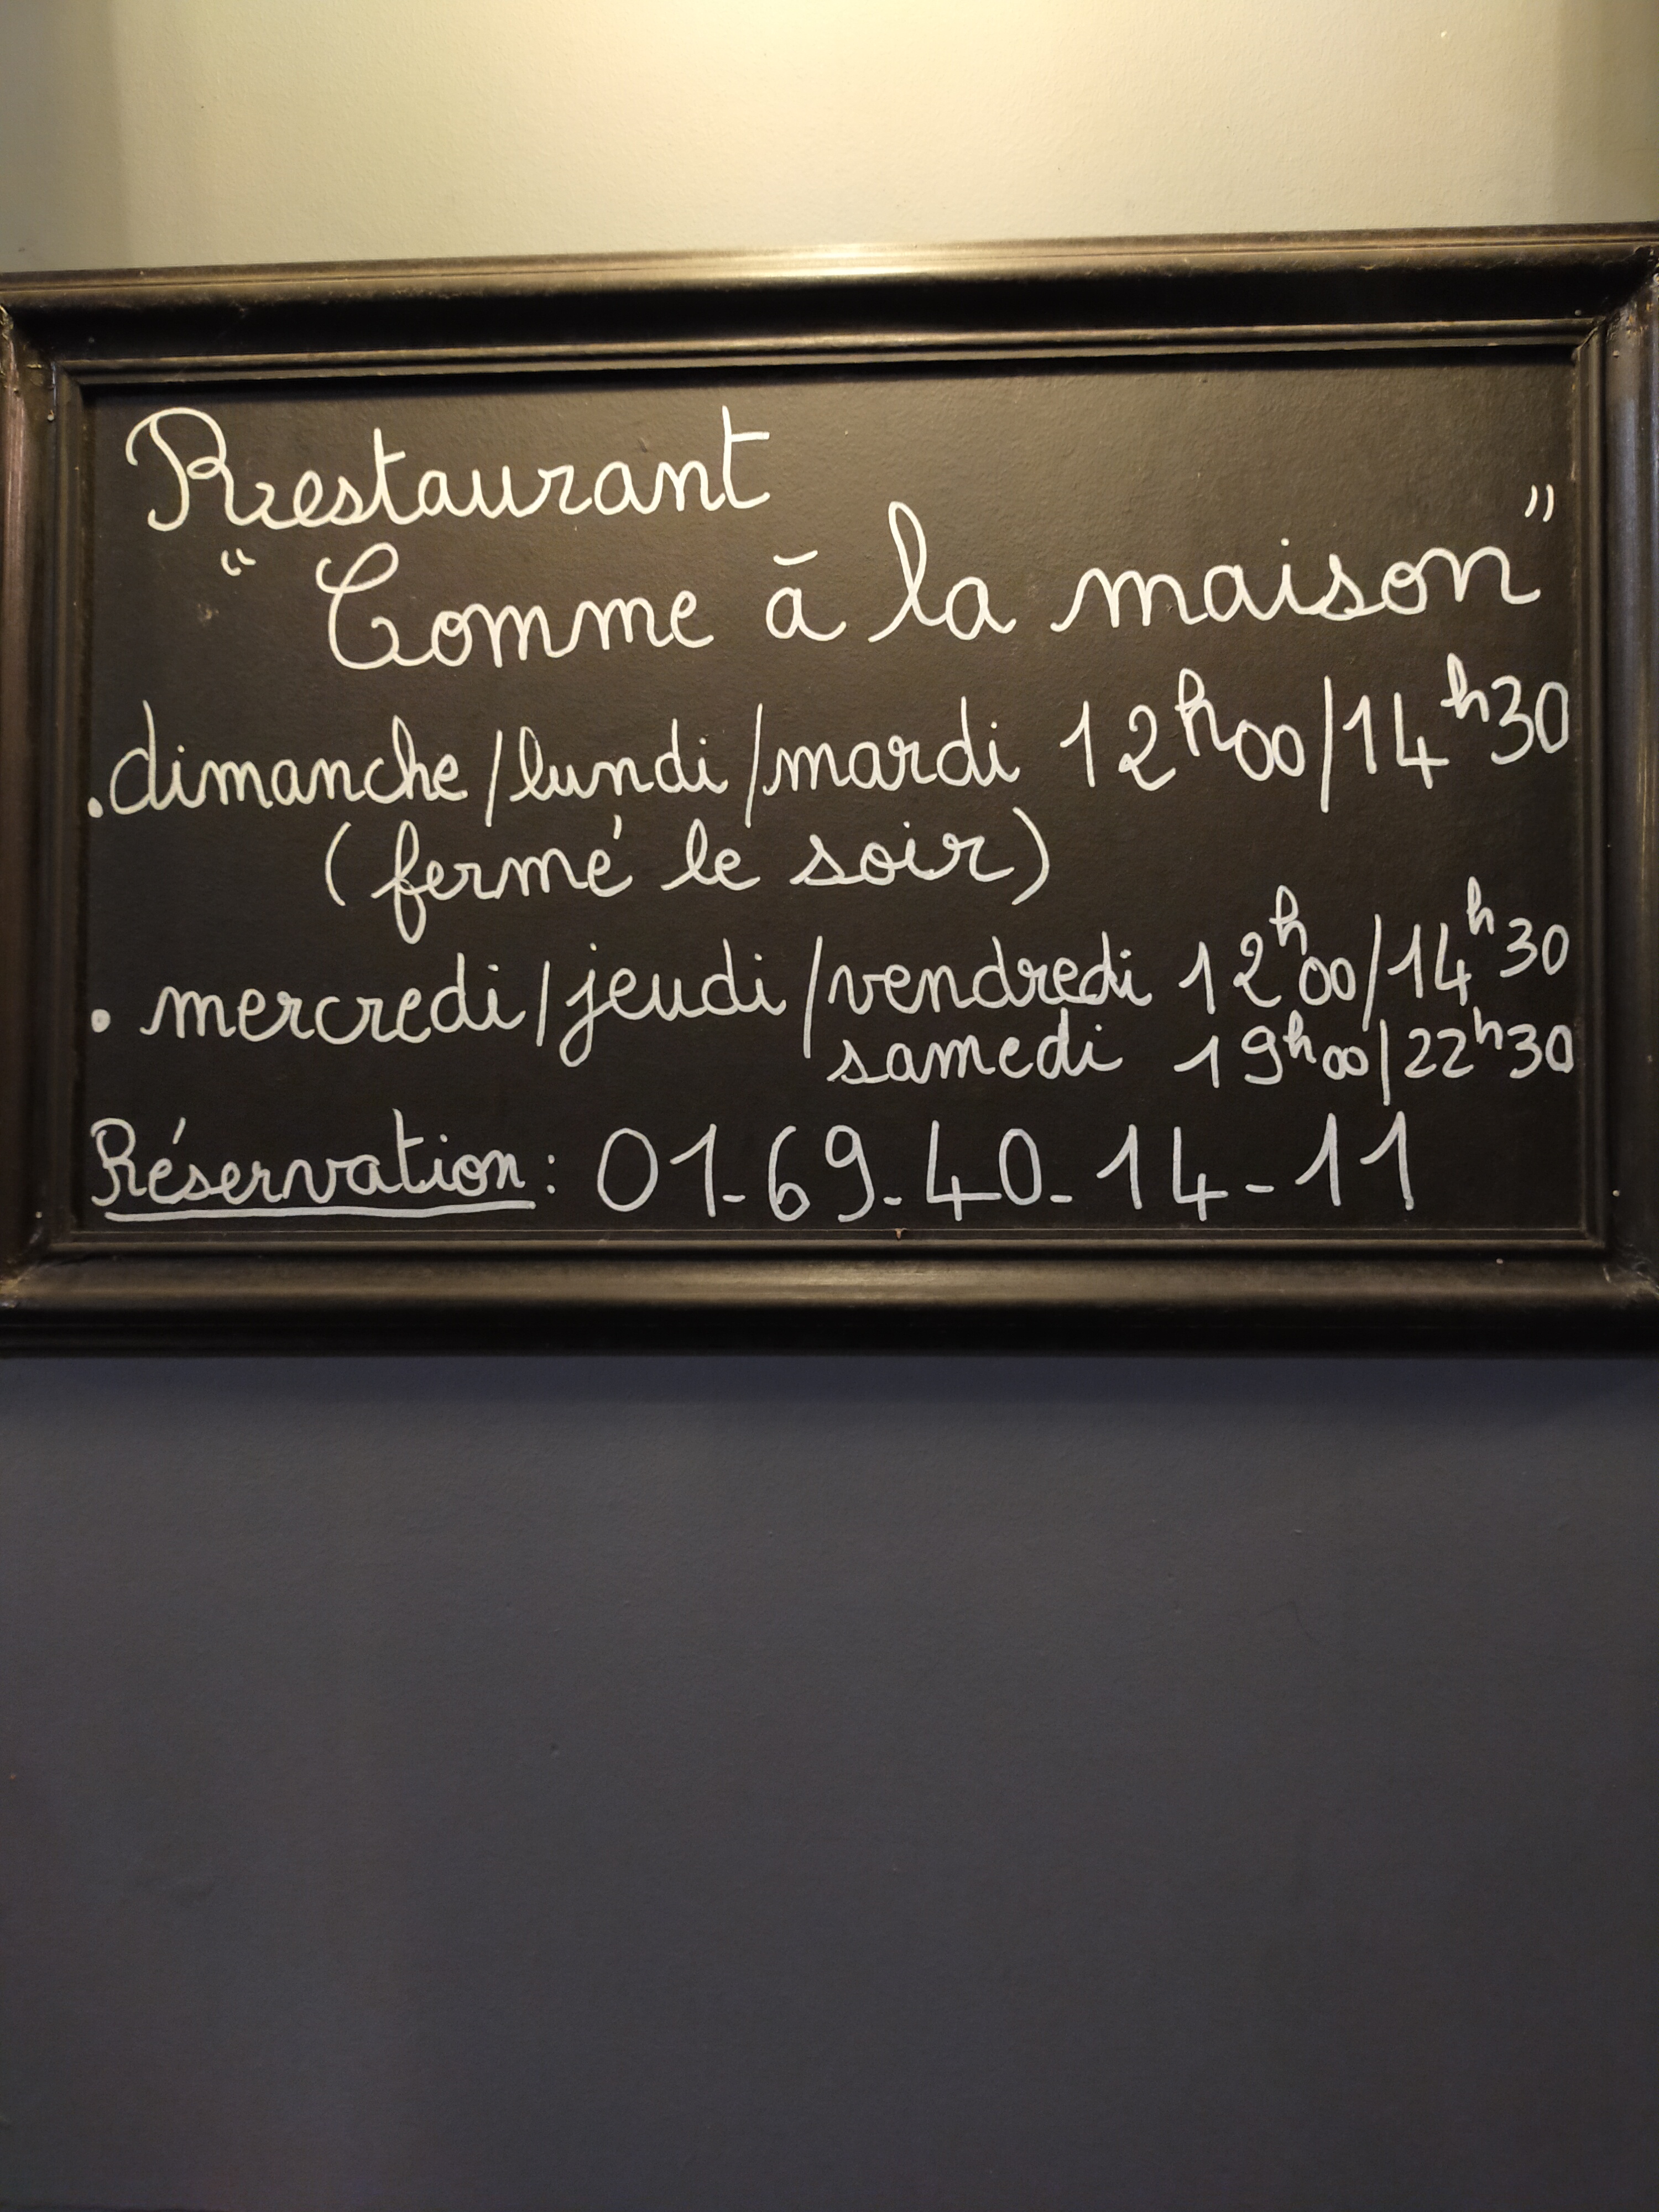 Restaurant
" Comme à la maison "
. dimanche/lundi/mardi 12h00/14h30
(fermé le soir)
• mercredi/jeudi/vendredi 12h00/14h30
samedi 19h00/22h30
Réservation : 01-69-40-14-11